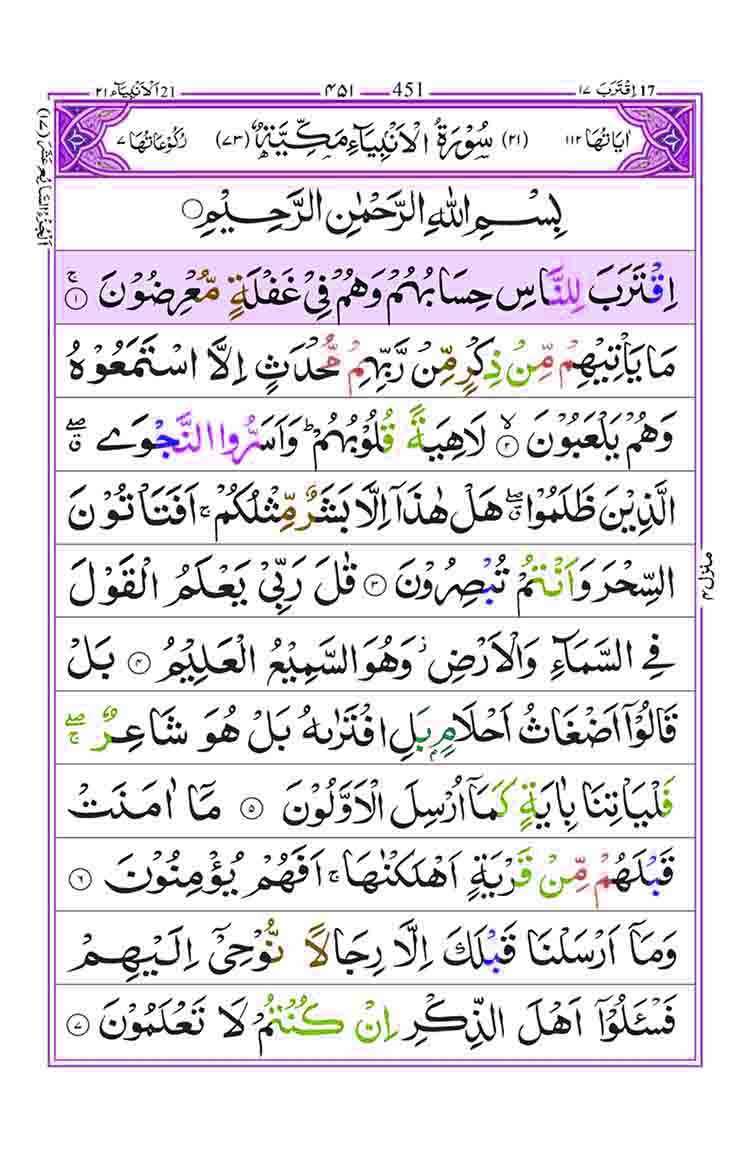 اِقْتَرَبَ ١٧ 17 — 451 — ۴۵۱ — 21 اَلْاَنْۢبِیَآء ٢١
اٰیَاتُهَا ١١٢ (٢١) سُوْرَةُ الْاَنْۢبِیَآءِ مَكِّیَّةٌ (٧٣) رُكُوْعَاتُهَا ٧
بِسْمِ اللّٰهِ الرَّحْمٰنِ الرَّحِیْمِ ○
اِقْتَرَبَ لِلنَّاسِ حِسَابُهُمْ وَهُمْ فِیْ غَفْلَةٍ مُّعْرِضُوْنَ ۚ ﴿١﴾
مَا یَاْتِیْهِمْ مِّنْ ذِكْرٍ مِّنْ رَّبِّهِمْ مُّحْدَثٍ اِلَّا اسْتَمَعُوْهُ
وَهُمْ یَلْعَبُوْنَ ۙ ﴿٢﴾ لَاهِیَةً قُلُوْبُهُمْ ؕ وَاَسَرُّوا النَّجْوَی ۖۗ
الَّذِیْنَ ظَلَمُوْا ۖۗ هَلْ هٰذَاۤ اِلَّا بَشَرٌ مِّثْلُكُمْ ۚ اَفَتَاْتُوْنَ
السِّحْرَ وَاَنْتُمْ تُبْصِرُوْنَ ﴿٣﴾ قٰلَ رَبِّیْ یَعْلَمُ الْقَوْلَ
فِی السَّمَآءِ وَالْاَرْضِ ؗ وَهُوَ السَّمِیْعُ الْعَلِیْمُ ﴿۴﴾ بَلْ
قَالُوْۤا اَضْغَاثُ اَحْلَامٍۭ بَلِ افْتَرٰىهُ بَلْ هُوَ شَاعِرٌ ۖۚ
فَلْیَاْتِنَا بِاٰیَةٍ كَمَاۤ اُرْسِلَ الْاَوَّلُوْنَ ﴿۵﴾ مَاۤ اٰمَنَتْ
قَبْلَهُمْ مِّنْ قَرْیَةٍ اَهْلَكْنٰهَا ۚ اَفَهُمْ یُؤْمِنُوْنَ ﴿۶﴾
وَمَاۤ اَرْسَلْنَا قَبْلَكَ اِلَّا رِجَالًا نُّوْحِیْۤ اِلَیْهِمْ
فَسْـَٔلُوْۤا اَهْلَ الذِّكْرِ اِنْ كُنْتُمْ لَا تَعْلَمُوْنَ ﴿٧﴾
اَلْجُزْءُ السَّابِعُ عَشَرَ (١٧)
منزل ۴